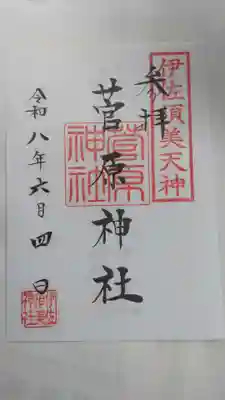 伊佐須美天神
奉拝
菅原神社
菅原神社
令和八年六月四日